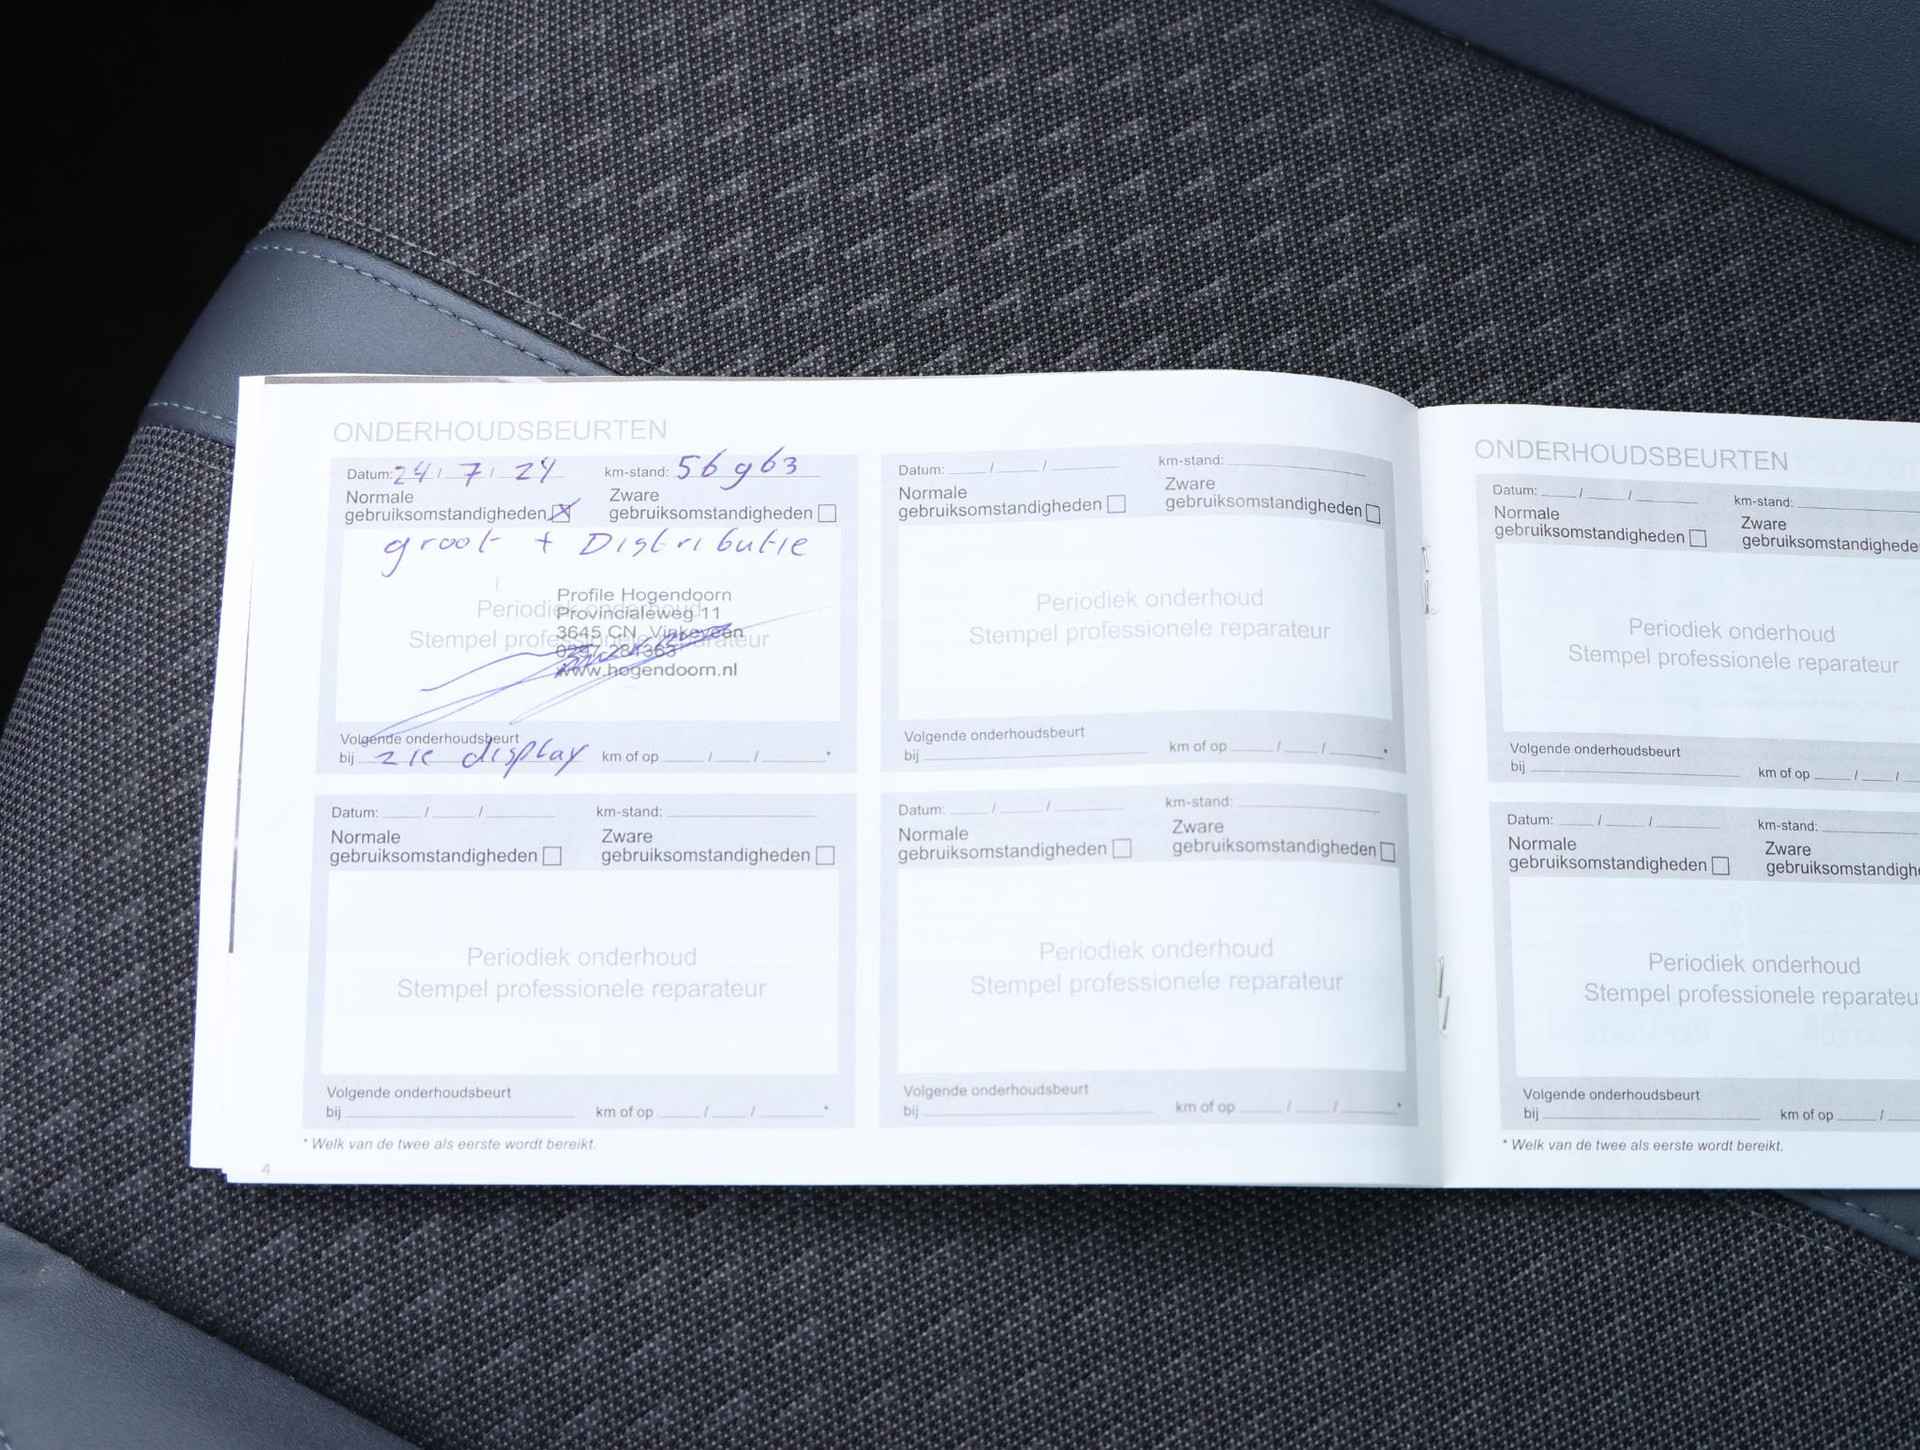 ONDERHOUDSBEURTEN
Datum: 24 / 7 / 24 km-stand: 56963
Normale
gebruiksomstandigheden
Zware
gebruiksomstandigheden
groot + Distributie
Periodiek onderhoud
Stempel professionele reparateur
Profile Hogendoorn
Provincialeweg 11
3645 CN Vinkeveen
0297-281363
www.hogendoorn.nl
Volgende onderhoudsbeurt
bij zie display km of op / / *
Datum: / / km-stand:
Normale
gebruiksomstandigheden
Zware
gebruiksomstandigheden
Periodiek onderhoud
Stempel professionele reparateur
Volgende onderhoudsbeurt
bij km of op / / *
Datum: / / km-stand:
Normale
gebruiksomstandigheden
Zware
gebruiksomstandigheden
Periodiek onderhoud
Stempel professionele reparateur
Volgende onderhoudsbeurt
bij km of op / / *
Datum: / / km-stand:
Normale
gebruiksomstandigheden
Zware
gebruiksomstandigheden
Periodiek onderhoud
Stempel professionele reparateur
Volgende onderhoudsbeurt
bij km of op / / *
* Welk van de twee als eerste wordt bereikt.
4
ONDERHOUDSBEURTEN
Datum: / / km-stand:
Normale
gebruiksomstandigheden
Zware
gebruiksomstandighede
Periodiek onderhoud
Stempel professionele reparateur
Volgende onderhoudsbeurt
bij km of op / /
Datum: / / km-stand:
Normale
gebruiksomstandigheden
Zware
gebruiksomstandighe
Periodiek onderhoud
Stempel professionele reparateu
Volgende onderhoudsbeurt
bij km of op /
* Welk van de twee als eerste wordt bereikt.